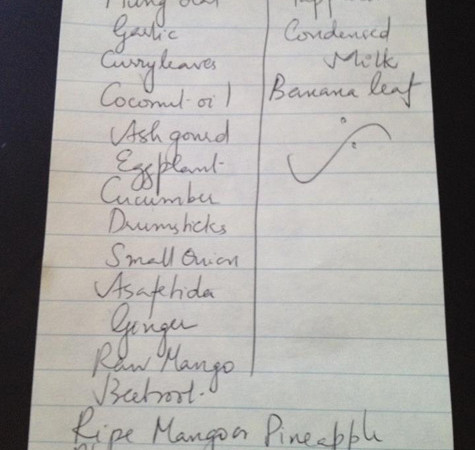 Garlic
Curry leaves
Coconut oil
Ash gourd
Eggplant
Cucumber
Drumsticks
Small Onion
Asafetida
Ginger
Raw Mango
Beetroot.
Ripe Mango or Pineapple
Condensed
Milk
Banana leaf